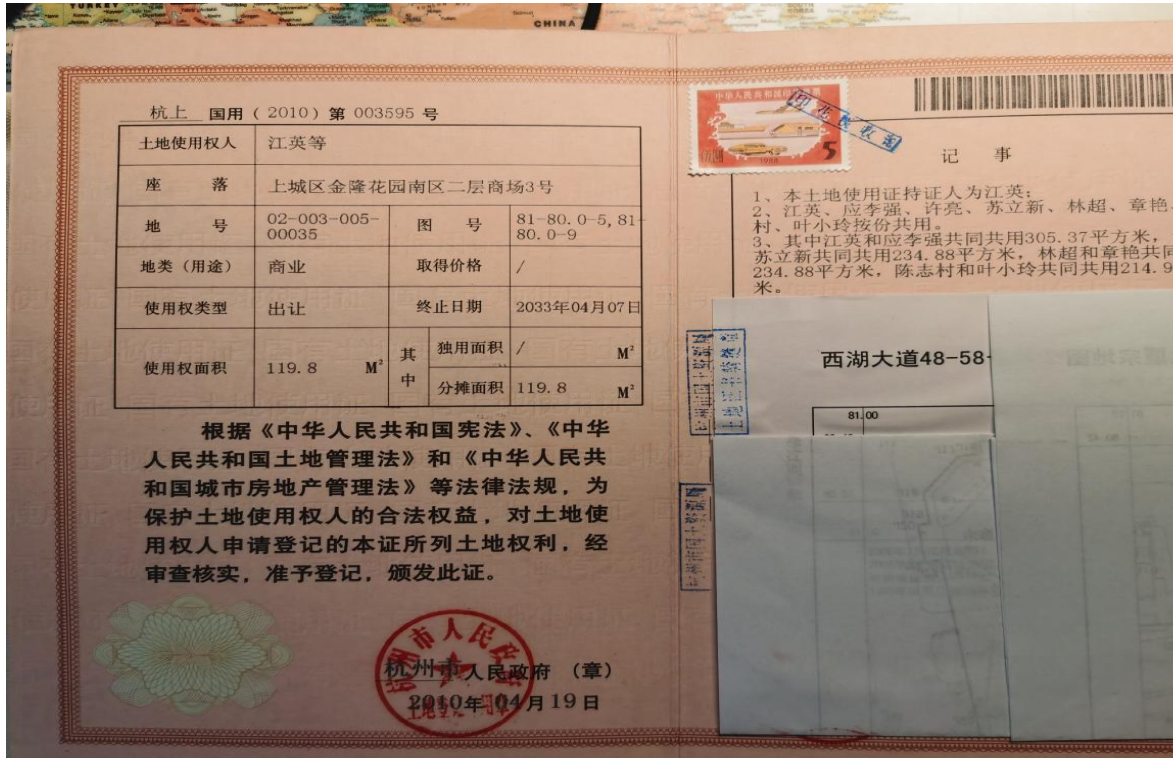 TURKEY
CHINA
杭上 国用 ( 2010 ) 第 003595 号
土地使用权人 江英等
座 落 上城区金隆花园南区二层商场3号
地 号 02-003-005-00035 图 号 81-80.0-5,81-80.0-9
地类（用途） 商业 取得价格 /
使用权类型 出让 终止日期 2033年04月07日
使用权面积 119.8 M² 其中 独用面积 / M²
分摊面积 119.8 M²
根据《中华人民共和国宪法》、《中华
人民共和国土地管理法》和《中华人民共
和国城市房地产管理法》等法律法规，为
保护土地使用权人的合法权益，对土地使
用权人申请登记的本证所列土地权利，经
审查核实，准予登记，颁发此证。
杭州市人民政府 （章）
2010年04月19日
中华人民共和国印花税票
5
1988
记 事
1、本土地使用证持证人为江英；
2、江英、应李强、许亮、苏立新、林超、章艳、
村、叶小玲按份共用。
3、其中江英和应李强共同共用305.37平方米，
苏立新共同共用234.88平方米，林超和章艳共同
234.88平方米，陈志村和叶小玲共同共用214.9
米。
西湖大道48-58
81.00